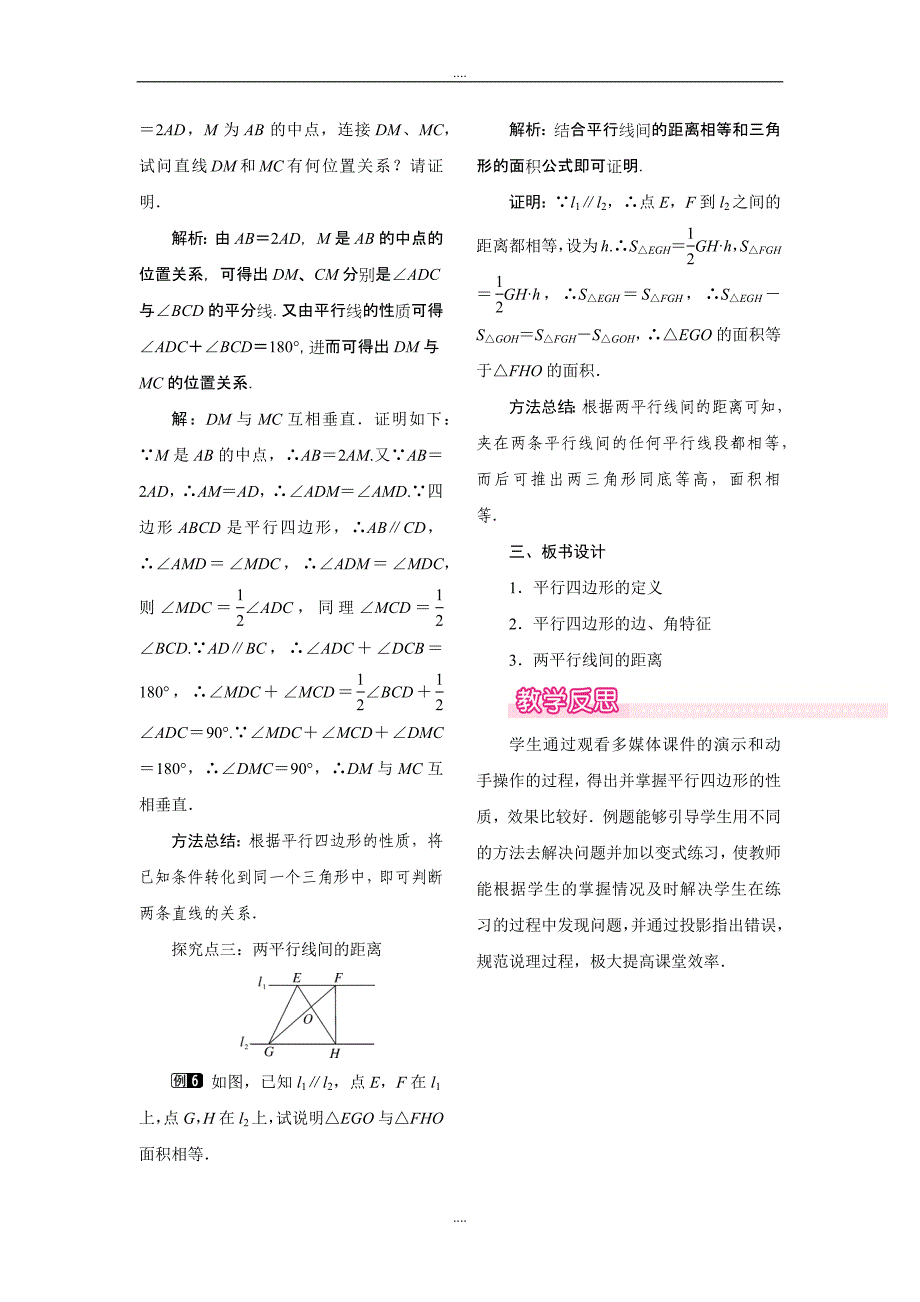 ....
＝2AD，M 为 AB 的中点，连接 DM、MC，
试问直线 DM 和 MC 有何位置关系？请证
明．
解析：由 AB＝2AD，M 是 AB 的中点的
位置关系，可得出 DM、CM 分别是∠ADC
与∠BCD 的平分线．又由平行线的性质可得
∠ADC＋∠BCD＝180°，进而可得出 DM 与
MC 的位置关系．
解：DM 与 MC 互相垂直．证明如下：
∵M 是 AB 的中点，∴AB＝2AM.又∵AB＝
2AD，∴AM＝AD，∴∠ADM＝∠AMD.∵四
边形 ABCD 是平行四边形，∴AB∥CD，
∴∠AMD＝∠MDC，∴∠ADM＝∠MDC，
则∠MDC＝1/2∠ADC，同理∠MCD＝1/2
∠BCD.∵AD∥BC，∴∠ADC＋∠DCB＝
180°，∴∠MDC＋∠MCD＝1/2∠BCD＋1/2
∠ADC＝90°.∵∠MDC＋∠MCD＋∠DMC
＝180°，∴∠DMC＝90°，∴DM 与 MC 互
相垂直．
方法总结：根据平行四边形的性质，将
已知条件转化到同一个三角形中，即可判断
两条直线的关系．
探究点三：两平行线间的距离
l1 E F
O
l2 G H
例6 如图，已知 l1∥l2，点 E，F 在 l1
上，点 G，H 在 l2 上，试说明△EGO 与△FHO
面积相等．
解析：结合平行线间的距离相等和三角
形的面积公式即可证明．
证明：∵l1∥l2，∴点 E，F 到 l2 之间的
距离都相等，设为 h.∴S△EGH＝1/2GH·h，S△FGH
＝1/2GH·h，∴S△EGH＝S△FGH，∴S△EGH－
S△GOH＝S△FGH－S△GOH，∴△EGO 的面积等
于△FHO 的面积．
方法总结：根据两平行线间的距离可知，
夹在两条平行线间的任何平行线段都相等，
而后可推出两三角形同底等高，面积相
等．
三、板书设计
1．平行四边形的定义
2．平行四边形的边、角特征
3．两平行线间的距离
教学反思
学生通过观看多媒体课件的演示和动
手操作的过程，得出并掌握平行四边形的性
质，效果比较好．例题能够引导学生用不同
的方法去解决问题并加以变式练习，使教师
能根据学生的掌握情况及时解决学生在练
习的过程中发现问题，并通过投影指出错误，
规范说理过程，极大提高课堂效率．
....